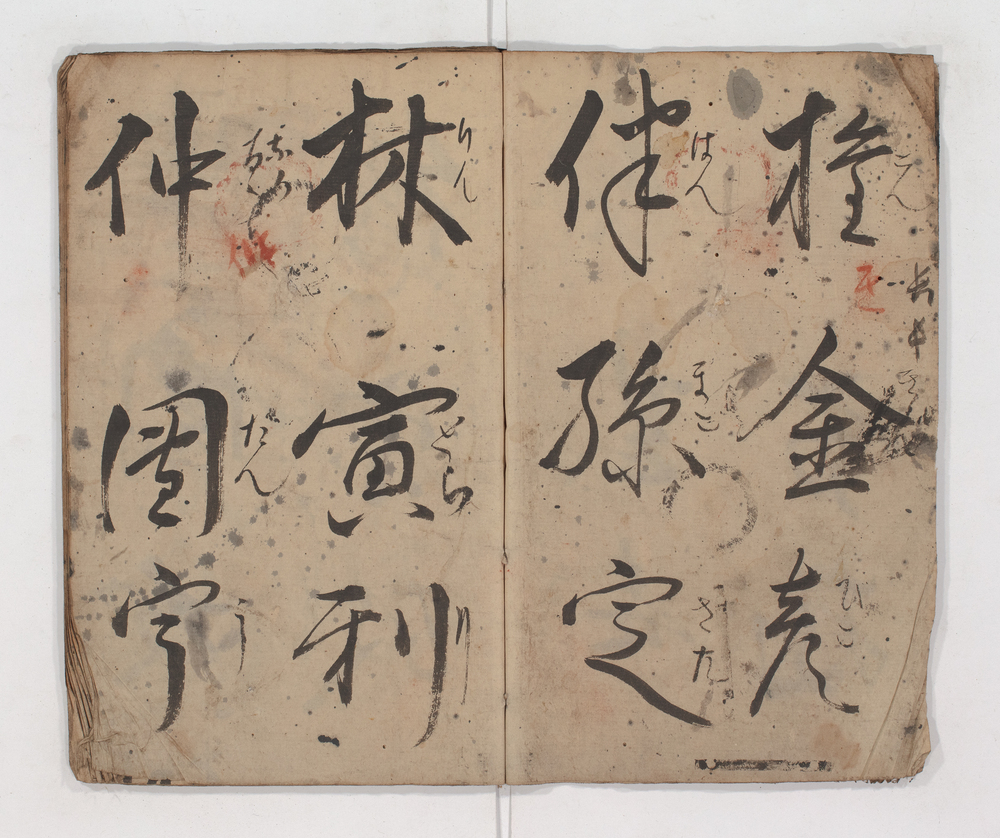 権金彦
こん ひこ
伴孫定
はん まこ さた
林寅利
りん とら り
仲團宇
だん う